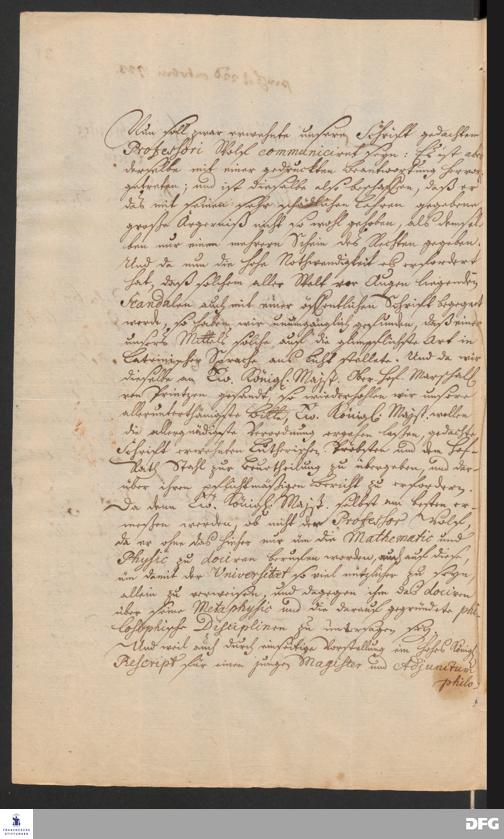 Nun soll zwar erwehnte unsere Schrifft gedachtem
Professori Wolf communiciret seyn: Es ist aber
derselbe mit einer gedruckten Beantwortung hervor
getreten; und ist dieselbe also beschaffen, daß er
das mit seinen sehr schädlichen Lehren gegebene
große Ärgerniß nicht so wohl gehoben, als demsel
ben nur einen mehrern Schein des Rechten gegeben.
Und da nun die hohe Nothwendigkeit es erfordert
hat, daß solchem aller Welt vor Augen liegenden
Scandalen auch mit einer öffentlichen Schrifft begegnet
werde, so haben wir unumgänglich gefunden, daß einer
unsers Mittels solche auf die glimpflichste Art in
Lateinischer Sprache ans Licht stellete. Und da wir
dieselbe an Ew. Königl. Majst. Ober Hof-Marschall
von Printzen gesandt, so wiederholen wir unsere
allerunterthänigste Bitte, Ew. Königl. Majst. wollen
die allergnädigste Verordnung ergehen lassen, gedachte
Schrifft erwehnten Lutherischen Pröbsten und dem Hof-
Rath Stahl zur Beurtheilung zu übergeben, und dar-
über ihren pflichtmäßigen Bericht zu erfordern.
Da denn Ew. Königl. Majst. selbst am besten er-
meßen werden, ob nicht der Professor Wolf,
da er ohne das hieher nur um die Mathematic und
Physic zu dociren beruffen worden, auch auf diese,
um damit der Universitaet so viel nützlicher zu seyn,
allein zu verweisen, und dagegen ihm das dociren
über seine Metaphysic und die daraus gegründete phi-
losophische Disciplinen zu untersagen sey.
Und weil auch durch einseitige Vorstellung ein hohes Königl.
Rescript für einen jungen Magister und Adjunctum
philo-
FRANCKESCHE STIFTUNGEN
DFG